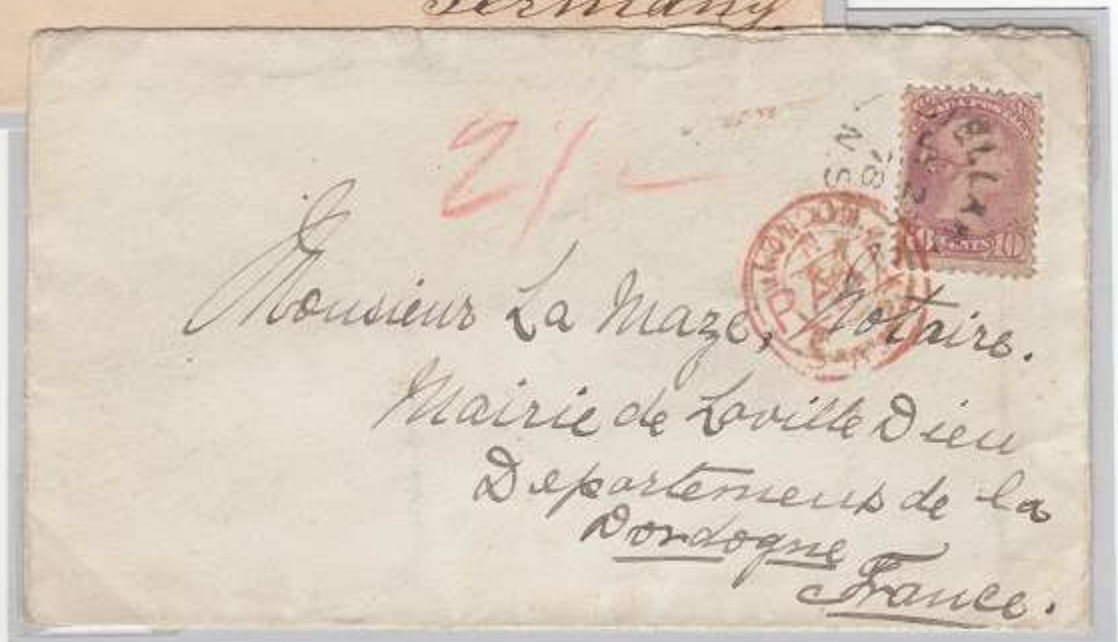 Germany
2/-
N.S.
10 CENTS 10
Monsieur La Maze, Notaire.
Mairie de Laville Dieu
Departement de la
Dordogne
France.